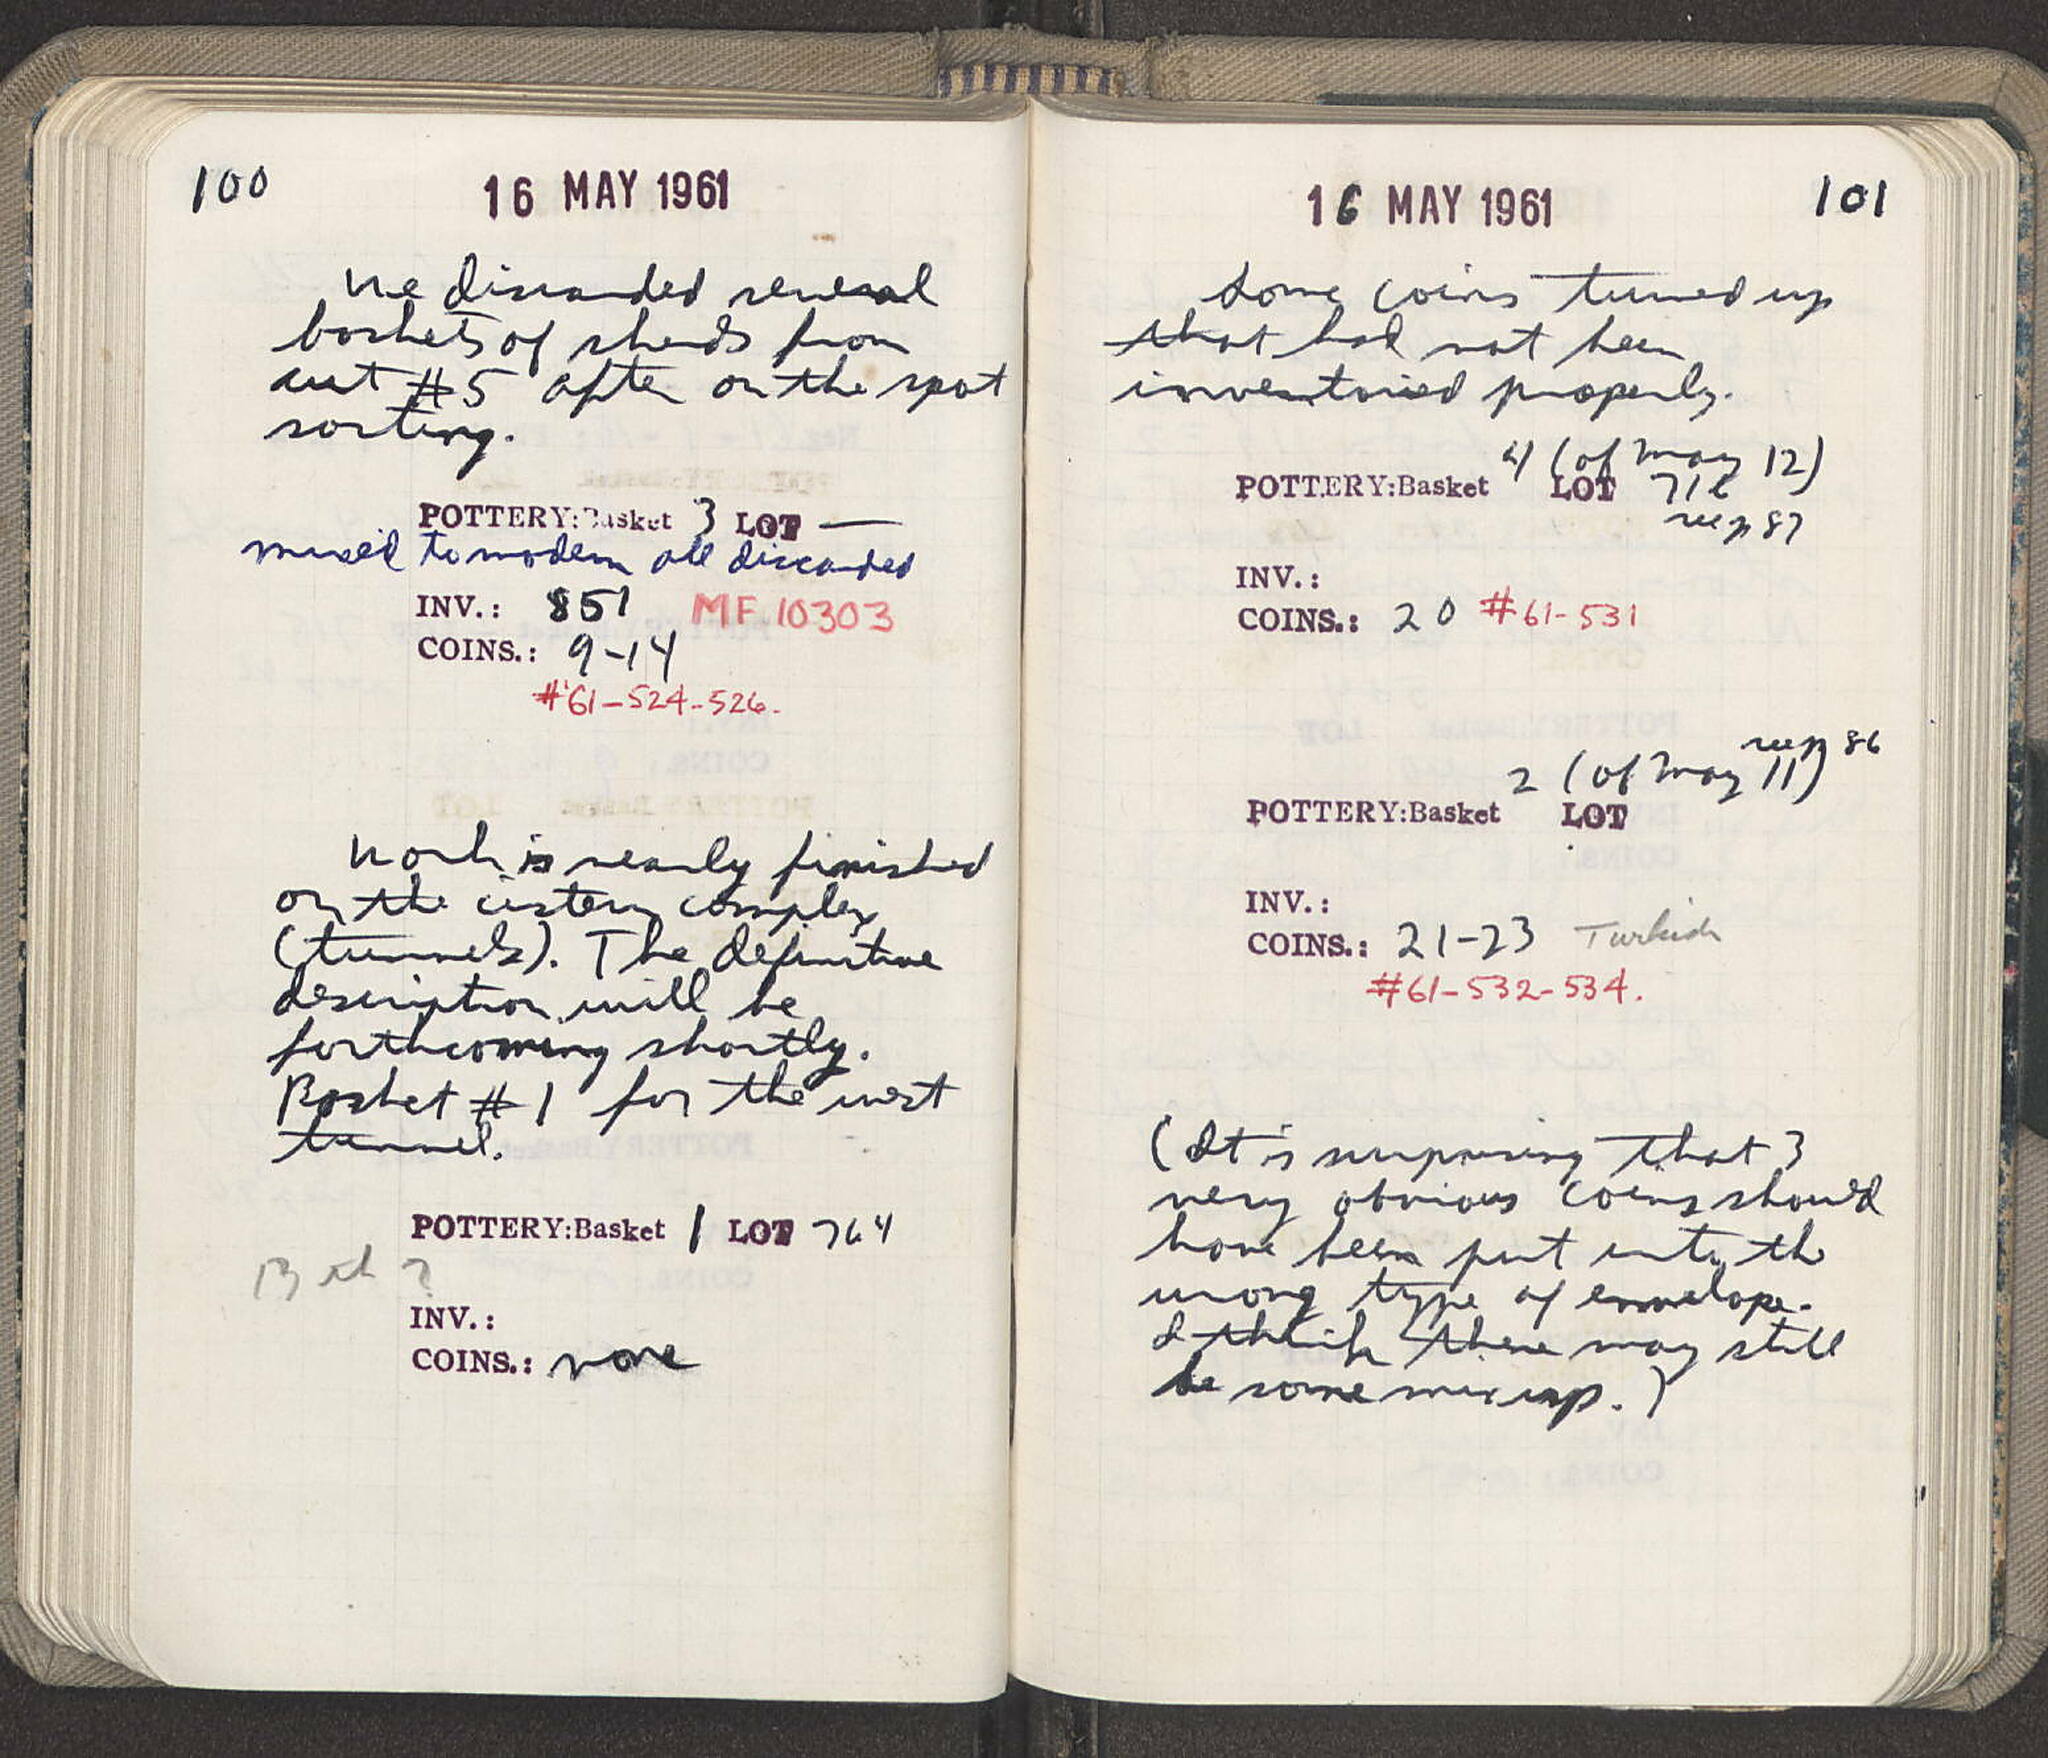 100
16 MAY 1961
We discarded several
baskets of sherds from
cut #5 after on the spot
sorting.
POTTERY:Basket 3 LOT —
mixed to modern all discarded
INV.: 851 MF 10303
COINS.: 9-14
#61-524-526.
Work is nearly finished
on the cistern complex
(tunnels). The definitive
description will be
forthcoming shortly.
Basket #1 for the west
tunnel.
POTTERY:Basket 1 LOT 764
INV.:
COINS.: none
16 MAY 1961
101
Some coins turned up
that had not been
inventoried properly.
4 (of May 12)
POTTERY:Basket LOT
see p 87
INV.:
COINS.: 20 #61-531
see p 86
2 (of May 11)
POTTERY:Basket LOT
INV.:
COINS.: 21-23 Turkish
#61-532-534.
(It is surprising that 3
very obvious coins should
have been put into the
wrong type of envelope.
I think there may still
be some mix up.)